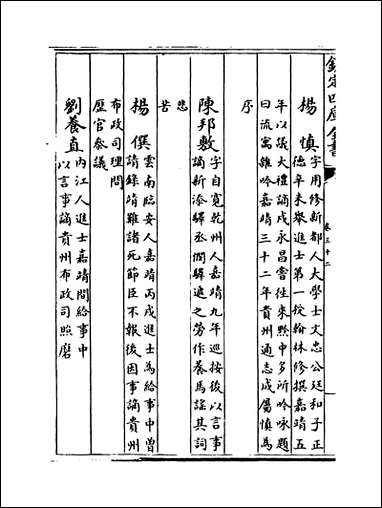 欽定四庫全書
卷三十二
楊慎字用修新都人大學士文忠公廷和子正
德辛未舉進士第一授翰林修撰嘉靖五
年以議大禮謫戍永昌嘗往來黔中多所吟咏題
曰流寓雜吟嘉靖三十二年貴州通志成屬慎為
序
陳邦敷字自寬乾州人嘉靖九年巡按後以言事
謫新添驛丞憫驛遞之勞作養馬謡其詞
悲苦
楊僎雲南臨安人嘉靖丙戌進士為給事中曾
請録靖難諸死節臣不報後因事謫貴州
布政司理問
歴官參議
劉養直内江人進士嘉靖間給事中
以言事謫貴州布政司照磨